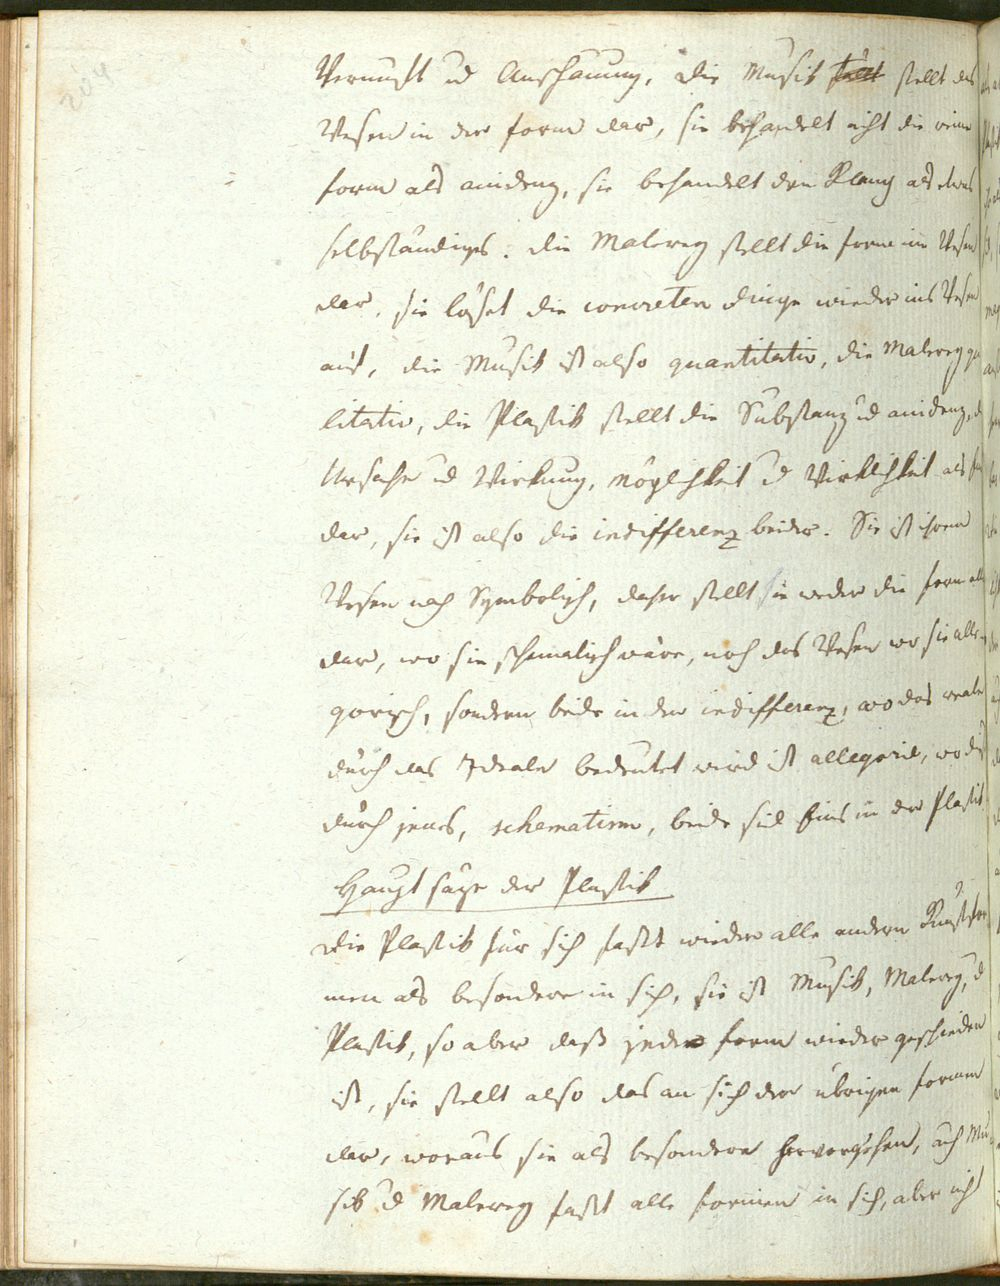 204
Vernunft ud Anschauung. Die Musik stellt das
Wesen in der form dar, sie behandelt nicht die reine
form als accidenz, sie behandelt den Klang als etwas
selbständiges. die Malerey stellt die form im Wesen
dar, sie löset die concreten dinge wieder ins Wesen
auf, die Musik ist also quantitativ, die Malerey qua
litativ, die Plastik stellt die Substanz ud accidenz, d
Ursache ud Wirkung, Möglichkeit ud Wirklichkeit als
dar, sie ist also die indifferenz beider. Sie ist ihrem
Wesen nach Symbolisch, daher stellt sie weder die form allein
dar, wo sie schematisch wäre, noch das Wesen wo sie alle-
gorisch, sondern beide in der indifferenz, wo das reale
durch das Ideale bedeutet wird ist allegorie, wo dieß
durch jenes, schematism, beide sind Eins in der Plastik.
Hauptsäze der Plastik
Die Plastik für sich faßt wieder alle andern Kunstfor
men als besondere in sich, sie ist Musik, Malerey, ud
Plastik, so aber daß jede form wieder geschieden
ist, sie stellt also das an sich der übrigen formen
dar, woraus sie als besondere hervorgehen, auch Mu
sik ud Malerey faßt alle formen in sich, aber nicht